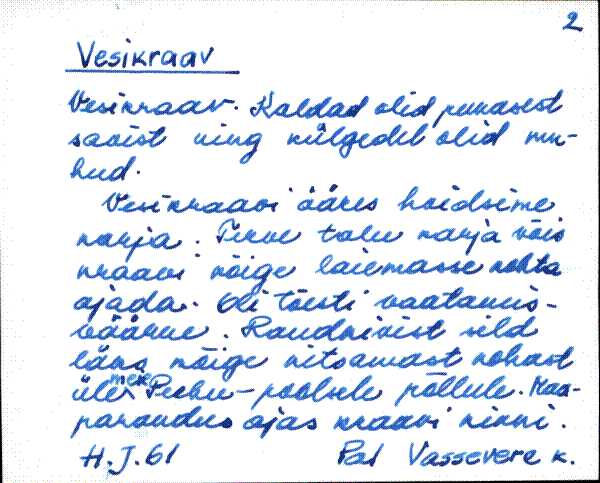 2
Vesikraav
Vesikraav. Kaldad olid punasest
savist ning külgedel olid mu-
hud.
Vesikraavi ääres hoidsime
karja. Terve talu karja võis
kraavi kõige laiemasse kohta
ajada. Oli tõesti vaatamis-
väärne. Raudkivist sild
läks kõige kitsamast kohast
üle meie Peebu-poolsele põllule. Maa-
parandus ajas kraavi kinni.
H.J.61 Pal Vassevere k.